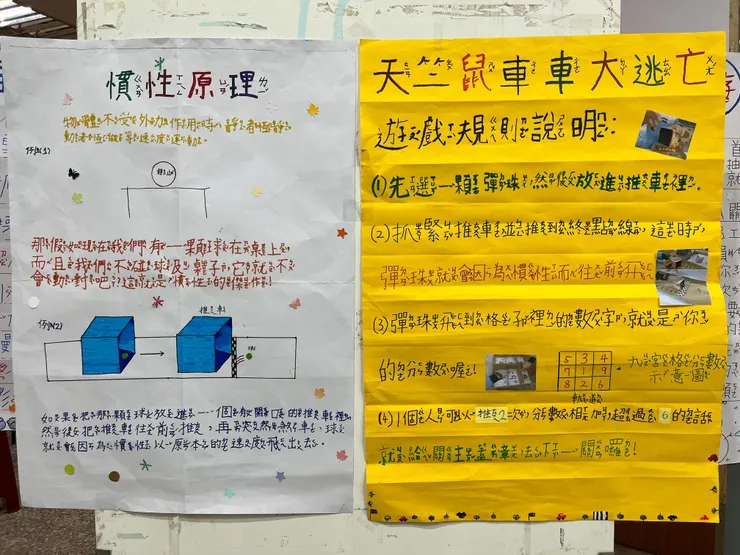 慣性原理
物體不受外力作用時，靜者恆靜，
動者恆做等速度運動。
例(1)
靜止
那假如現在我們有一顆球在桌上，
而且我們不碰球及桌子，它就不
會動對吧？這就是慣性的傑作！
例(2)
推車
球
如果把那顆球放進一個有開口的推車裡，
然後把推車往前推，再突然煞車，球
就會因為慣性以原本的速度飛出去。
天竺鼠車車大逃亡
遊戲規則說明：
(1)先選一顆彈珠，然後放進推車裡。
(2)抓緊推車並推到終點線，這時，
彈珠就會因為慣性而往前飛。
(3)彈珠飛到格子裡的數字就是你
的分數喔！
5 3 4
7 1 9
8 2 6
九宮格分數
示意圖
(4)1個人可以推2次，分數相加超過6的話
就給關主蓋章去下一關囉！